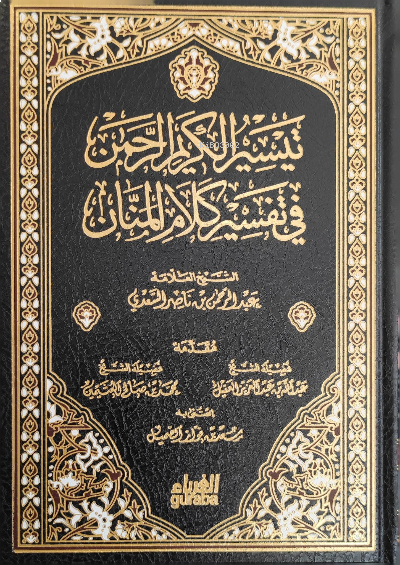 تيسير الكريم الرحمن
في تفسير كلام المنان
الشيخ العلامة
عبد الرحمن بن ناصر السعدي
مقدمة
فضيلة الشيخ
عبد الله بن عبد العزيز العقيل
فضيلة الشيخ
محمد بن صالح العثيمين
اعتنى به
سعد بن فواز الصميل
الغرباء
guraba